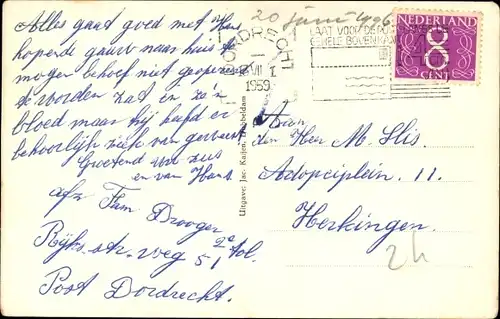 Alles gaat goed met Hans
hopende gauw naar huis te
mogen behoef niet geopereerd
te worden zat en z'n
bloed maar hij heeft er
behoorlijk ziek van geweest
Groetend uw zus
en van Hans
afz. Fam Drooger
Rijks.str.weg 51 2e tol.
Post Dordrecht.
20 juni 1996
DORDRECHT
VII
1959
LAAT VOOR DE
GEHELE BOVENKA
NEDERLAND
8
CENT
Uitgave: Jac. Kaljouw, Dubbeldam
Aan
den Heer M. Slis.
Adopciplein. 11.
Herkingen.
2h